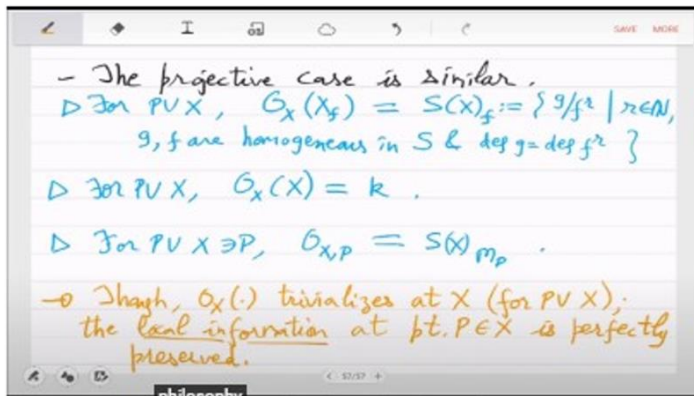 SAVE MORE
- The projective case is similar.
▷ For PV X, O_X(X_f) = S(X)_f := { g/f^r | r∈N,
g, f are homogeneous in S & deg g = deg f^r }
▷ For PV X, O_X(X) = k .
▷ For PV X ∋P, O_{X,P} = S(X)_{m_P} .
→ Though, O_X(·) trivializes at X (for PV X);
the local information at pt. P∈X is perfectly
preserved.
< 57/57 +
philosophy